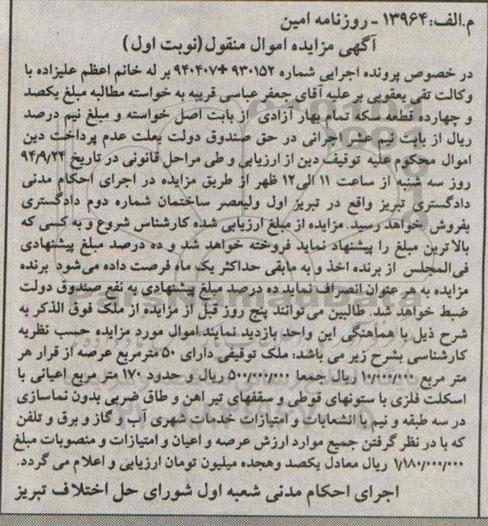 م.الف: ۱۳۹۶۴ - روزنامه امین
آگهی مزایده اموال منقول (نوبت اول)
در خصوص پرونده اجرایی شماره ۹۳۰۱۵۲+۹۴۰۴۰۷ بر له خانم اعظم علیزاده با
وکالت تقی یعقوبی بر علیه آقای جعفر عباسی قریبه به خواسته مطالبه مبلغ یکصد
و چهارده قطعه سکه تمام بهار آزادی از بابت اصل خواسته و مبلغ نیم درصد
ریال از بابت نیم عشر اجرائی در حق صندوق دولت بعلت عدم پرداخت دین
اموال محکوم علیه توقیف دین از ارزیابی و طی مراحل قانونی در تاریخ ۹۴/۹/۲۴
روز سه شنبه از ساعت ۱۱ الی ۱۲ ظهر از طریق مزایده در اجرای احکام مدنی
دادگستری تبریز واقع در تبریز اول ولیعصر ساختمان شماره دوم دادگستری
بفروش خواهد رسید. مزایده از مبلغ ارزیابی شده کارشناس شروع و به کسی که
بالاترین مبلغ را پیشنهاد نماید فروخته خواهد شد و ده درصد مبلغ پیشنهادی
فی‌المجلس از برنده اخذ و به مابقی حداکثر یک ماه فرصت داده می‌شود برنده
مزایده به هر عنوان انصراف نماید ده درصد مبلغ پیشنهادی به نفع صندوق دولت
ضبط خواهد شد. طالبین می‌توانند پنج روز قبل از مزایده از ملک فوق الذکر به
شرح ذیل با هماهنگی این واحد بازدید نمایند اموال مورد مزایده حسب نظریه
کارشناسی بشرح زیر می باشد: ملک توقیفی دارای ۵۰ مترمربع عرصه از قرار هر
متر مربع ۱۰/۰۰۰/۰۰۰ ریال جمعا ۵۰۰/۰۰۰/۰۰۰ ریال و حدود ۱۷۰ متر مربع اعیانی با
اسکلت فلزی با ستونهای قوطی و سقفهای تیر اهن و طاق ضربی بدون نماسازی
در سه طبقه و نیم با انشعابات و امتیازات خدمات شهری آب و گاز و برق و تلفن
که با در نظر گرفتن جمیع موارد ارزش عرصه و اعیان و امتیازات و منصوبات مبلغ
۱/۱۸۰/۰۰۰/۰۰۰ ریال معادل یکصد وهجده میلیون تومان ارزیابی و اعلام می گردد.
اجرای احکام مدنی شعبه اول شورای حل اختلاف تبریز
ParsNamadData